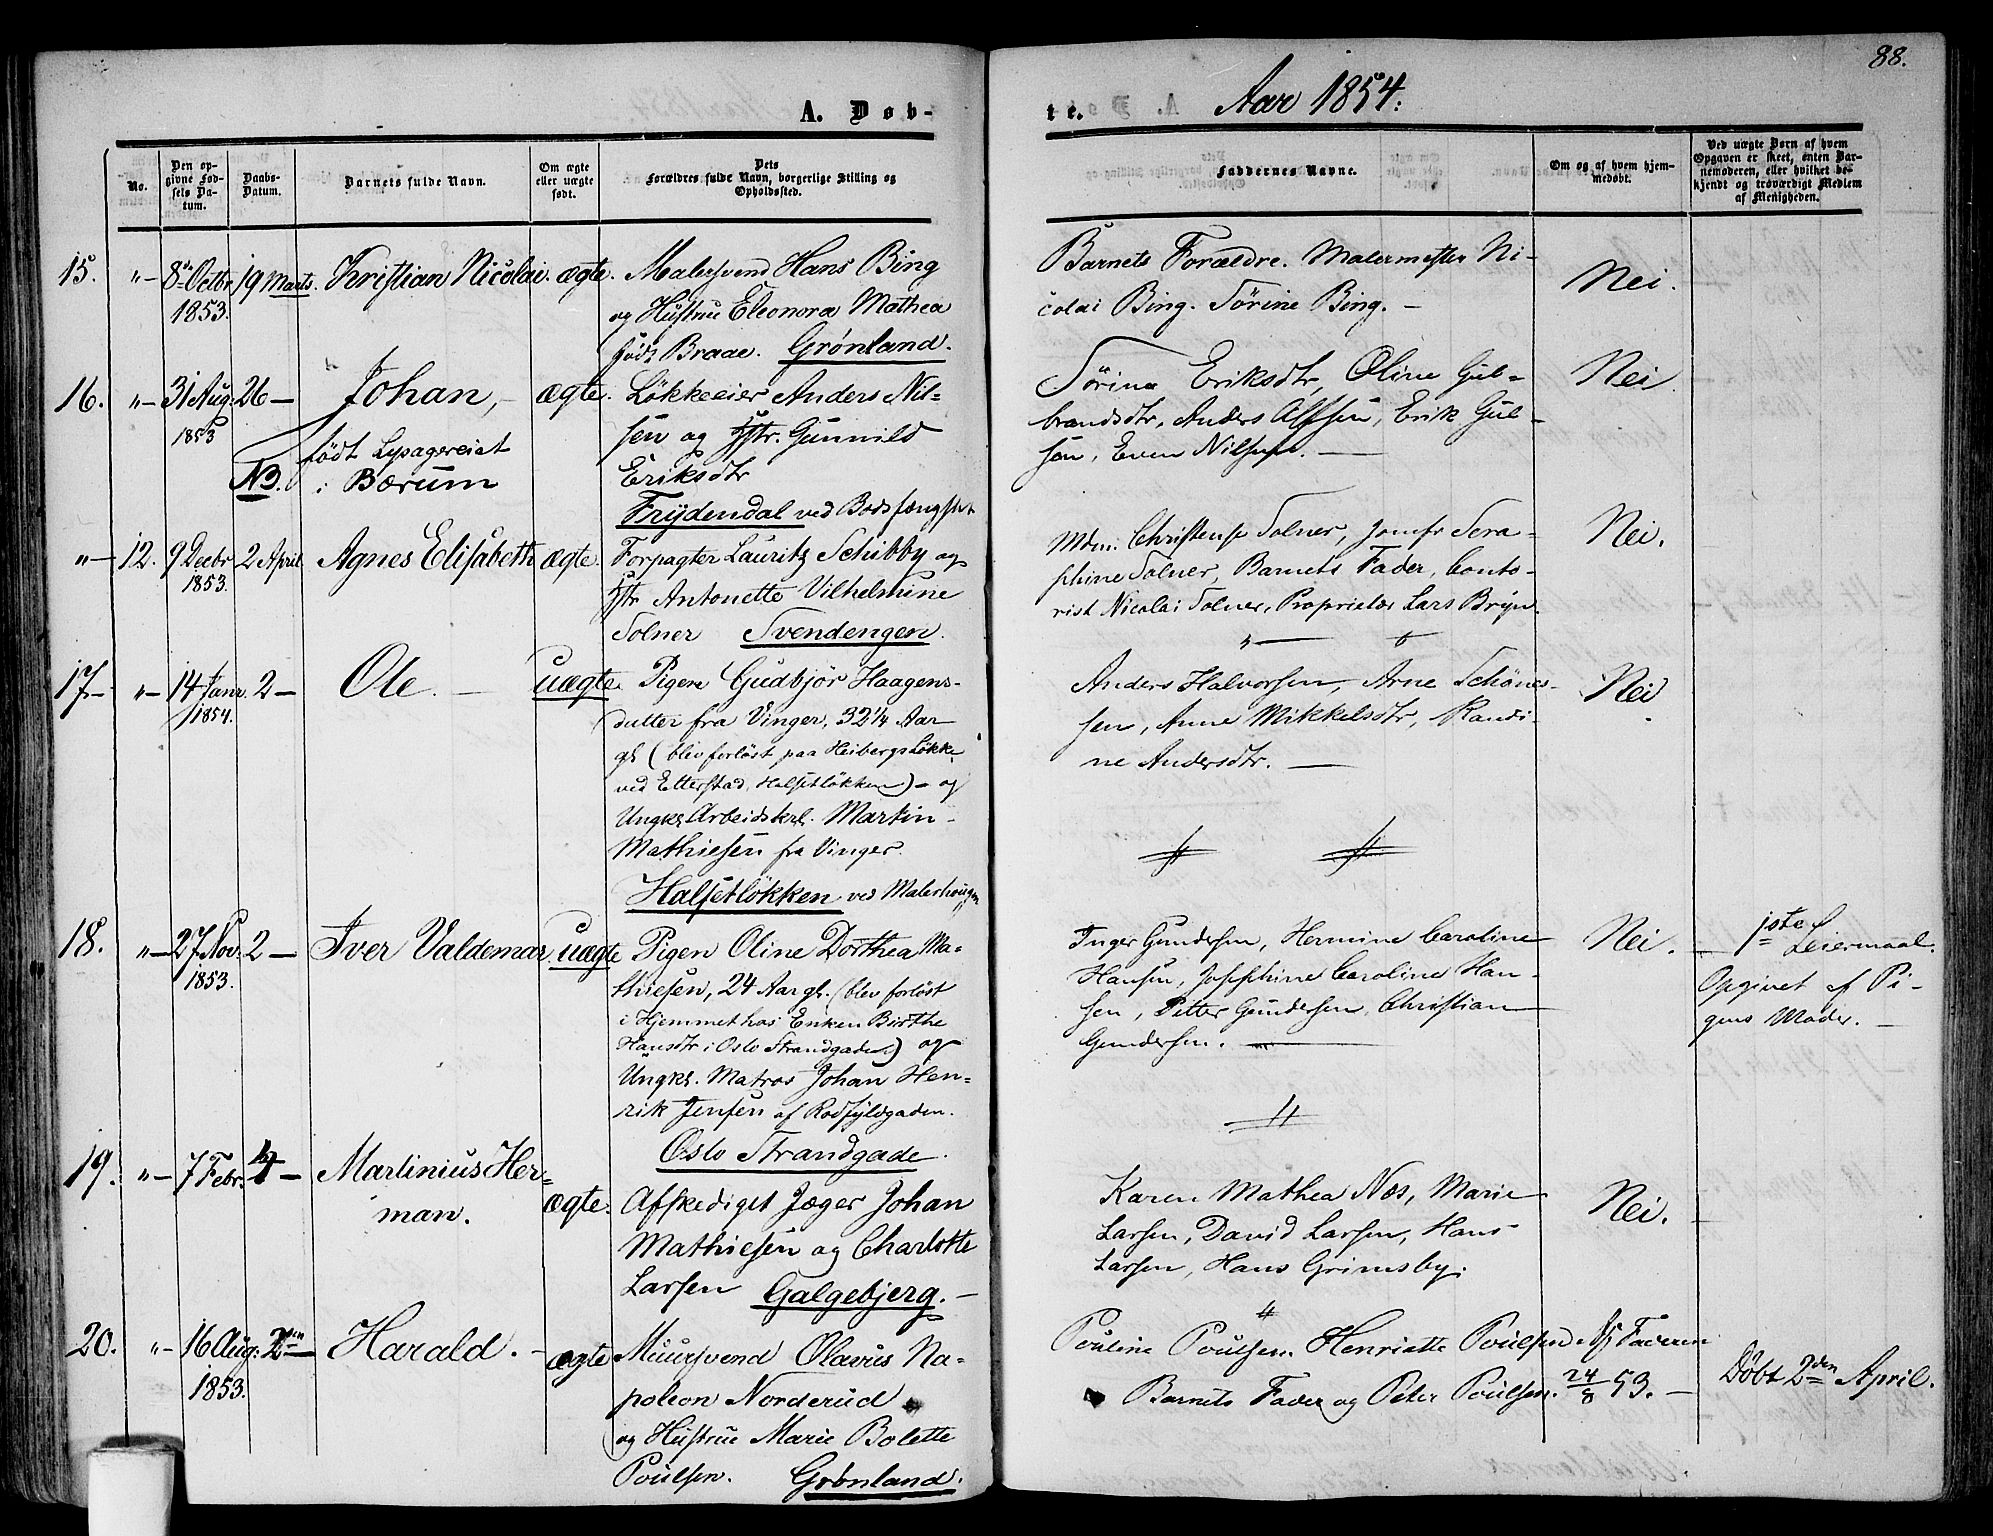 88.
A. Døb-
te.
Aar 1854.
No.
Den op-
givne Fød-
sels Da-
tum.
Daabs-
Datum.
Barnets fulde Navn.
Om ægte
eller uægte
født.
Dets
Forældres fulde Navn, borgerlige Stilling og
Opholdssted.
Faddernes Navne.
Om og af hvem hjem-
medøbt.
Ved uægte Børn af hvem
Opgaven er skeet, enten Bar-
nemoderen, eller hvilket be-
kjendt og troværdigt Medlem
af Menigheden.
15. "- 8de Octbr 19 Marts. Kristian Nicolai. ægte. Malersvend Hans Bing
1853. og Hustrue Eleonora Mathea
født Braae. Grønland.
Barnets Forældre. Malermester Ni-
colai Bing. Sørine Bing. -
Nei.
16. "- 31 Aug. 26 - Johan, - ægte. Løkkeeier Anders Nil-
1853 sen og Hstr. Gunnild
NB. født Lysagereiet Eriksdtr
i Bærum Frydendal ved Bodsfængslet
Sørine Eriksdtr, Oline Gul-
brandsdtr, Anders Alfsen, Erik Gul-
sen, Even Nilsen. -
Nei
"- 12. 9 Decbr 2 April Agnes Elisabeth ægte. Forpagter Lauritz Schibby og
1853. Hstr Antonette Vilhelmine
Solner Svendengen.
Mdm. Christense Solner, Jomfr Sera-
phine Solner, Barnets Fader, Conto-
rist Nicolai Solner, Proprietær Lars Bryn.
Nei.
17- "- 14 Janr. 2 - Ole. - uægte. Pigen Gudbjør Haagens-
1854. dutter fra Vinger, 32¼ Aar
gl. (blev forløst paa Heibergs Løkke
ved Etterstad, Halsetløkken) - og
Ungkr. Arbeidskrl. Martin
Mathiesen fra Vinger.
Halsetløkken ved Malerhougen
Anders Halvorsen, Arne Schønes-
sen, Anne Mikkelsdtr, Randi-
ne Andersdtr. -
Nei
18. "- 27 Nov. 2 - Iver Valdemar. uægte Pigen Oline Dorthea Ma-
1853. thiesen, 24 Aar gl. (blev forløst
i Hjemmet hos Enken Birthe
Hansdtr i Oslo Strandgade.) og
Ungkr. Matros Johan Hen-
rik Jensen af Rodfyldgaden.
Oslo Strandgade.
Inger Gundersen, Hermine Caroline
Hansen, Josephine Caroline Han-
sen, Petter Gundersen, Christian
Gundersen. -
Nei.
1ste Leiermaal.
Opgivet af Pi-
gens Moder. -
19. "- 7 Febr. 4 - Martinius Her-
man. ægte. Afskediget Jæger Johan
Mathiesen og Charlotte
Larsen Galgebjerg. -
Karen Mathea Næs, Marie
Larsen, David Larsen, Hans
Larsen, Hans Grimsby.
Nei.
20. "- 16 Aug: 2den Harald. - ægte Muursvend Olavus Na-
1853. poleon Norderud
og Hustrue Marie Bolette
Poulsen. Grønland.
Pouline Poulsen. Henriette Poulsen
Barnets Fader og Peter Poulsen.
Af Faderen
24/8 53. -
Døbt 2den April.